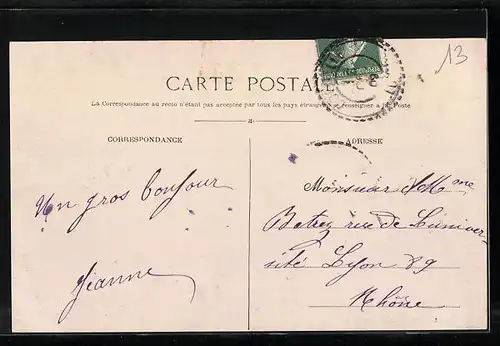 13
CARTE POSTALE
La Correspondance au recto n'étant pas acceptée par tous les pays étrangers, se renseigner à la Poste
CORRESPONDANCE
ADRESSE
Un gros bonjour
Jeanne
Monsieur & Mme
Betrey rue de L'univer-
sité Lyon 89
Rhône